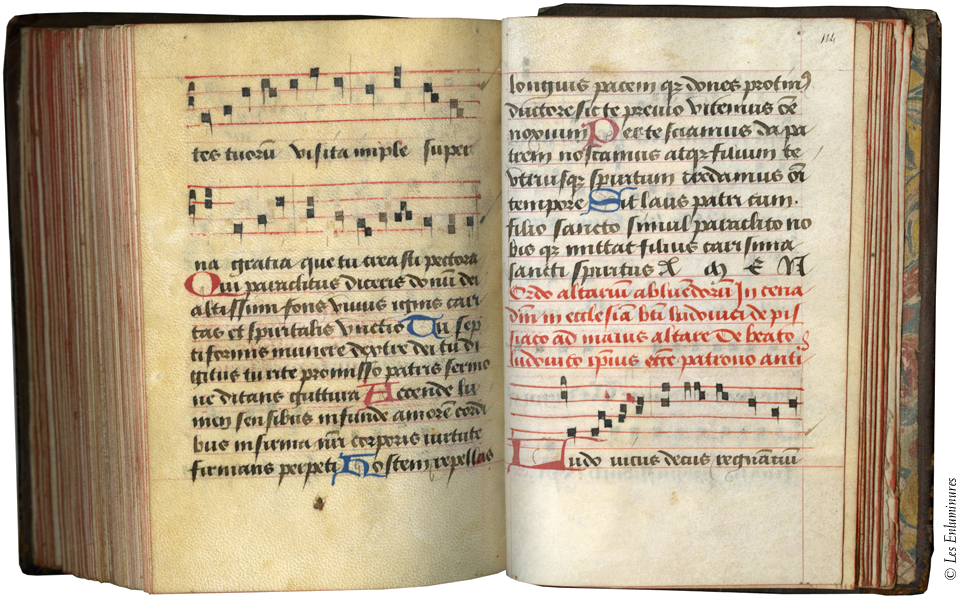 tes tuorū visita imple super
na gratia que tu creasti pectora
Qui paraclitus diceris donū dei
altissimi fons vivus ignis cari
tas et spiritalis vnctio Tu sep
tiformis munere dextre dei tu di
gitus tu rite promisso patris sermo
ne ditans guttura Accende lu
men sensibus infunde amorē cordi
bus infirma nr̄i corporis virtute
firmans perpeti Hostem repellas
114
longius pacem qz dones protinꝰ
ductore sic te previo vitemus oē
noxium Per te sciamus da pa
trem noscamus atqz filium te
vtriusqz spiritum credamus oī
tempore Sit laus patri cum
filio sancto simul paraclito no
bis qz mittat filius carisma
sancti spiritus A M E N
Ordo altariū abluēdorū In cena
dn̄i in ecclesia bt̄i ludovici de pis
siaco ad maius altare De beato
ludovico ip̄ius ecce patrono anti
Ludovicus decus regnātiū
© Les Enluminures